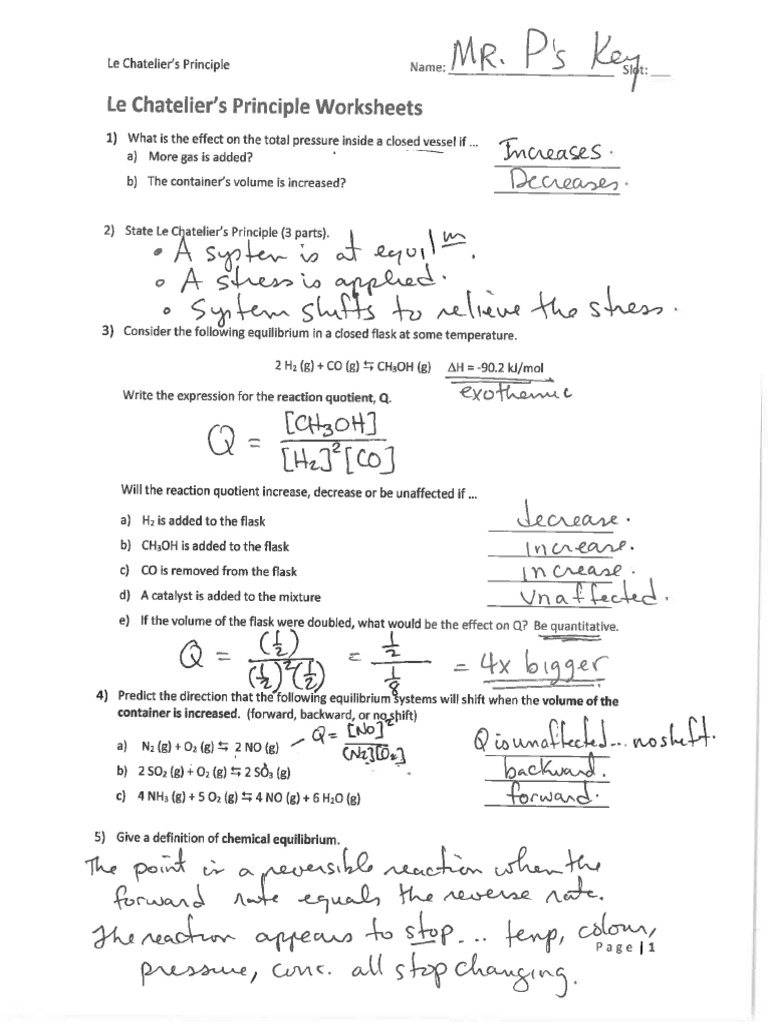 Le Chatelier's Principle Name: MR. P's Key Slot:
Le Chatelier's Principle Worksheets
1) What is the effect on the total pressure inside a closed vessel if ...
a) More gas is added? Increases.
b) The container's volume is increased? Decreases.
2) State Le Chatelier's Principle (3 parts).
• A system is at equil'm.
• A stress is applied.
• System shifts to relieve the stress.
3) Consider the following equilibrium in a closed flask at some temperature.
2 H₂ (g) + CO (g) ⇆ CH₃OH (g) ΔH = -90.2 kJ/mol
exothermic
Write the expression for the reaction quotient, Q.
Q = [CH₃OH] / [H₂]²[CO]
Will the reaction quotient increase, decrease or be unaffected if ...
a) H₂ is added to the flask decrease.
b) CH₃OH is added to the flask increase.
c) CO is removed from the flask increase.
d) A catalyst is added to the mixture Unaffected.
e) If the volume of the flask were doubled, what would be the effect on Q? Be quantitative.
Q = (1/2) / (1/2)²(1/2) = 1/2 / 1/8 = 4x bigger
4) Predict the direction that the following equilibrium systems will shift when the volume of the
container is increased. (forward, backward, or no shift)
a) N₂ (g) + O₂ (g) ⇆ 2 NO (g) – Q = [NO]² / [N₂][O₂] Q is unaffected... no shift.
b) 2 SO₂ (g) + O₂ (g) ⇆ 2 SO₃ (g) backward.
c) 4 NH₃ (g) + 5 O₂ (g) ⇆ 4 NO (g) + 6 H₂O (g) forward.
5) Give a definition of chemical equilibrium.
The point in a reversible reaction when the
forward rate equals the reverse rate.
The reaction appears to stop... temp, colour,
Page | 1
pressure, conc. all stop changing.